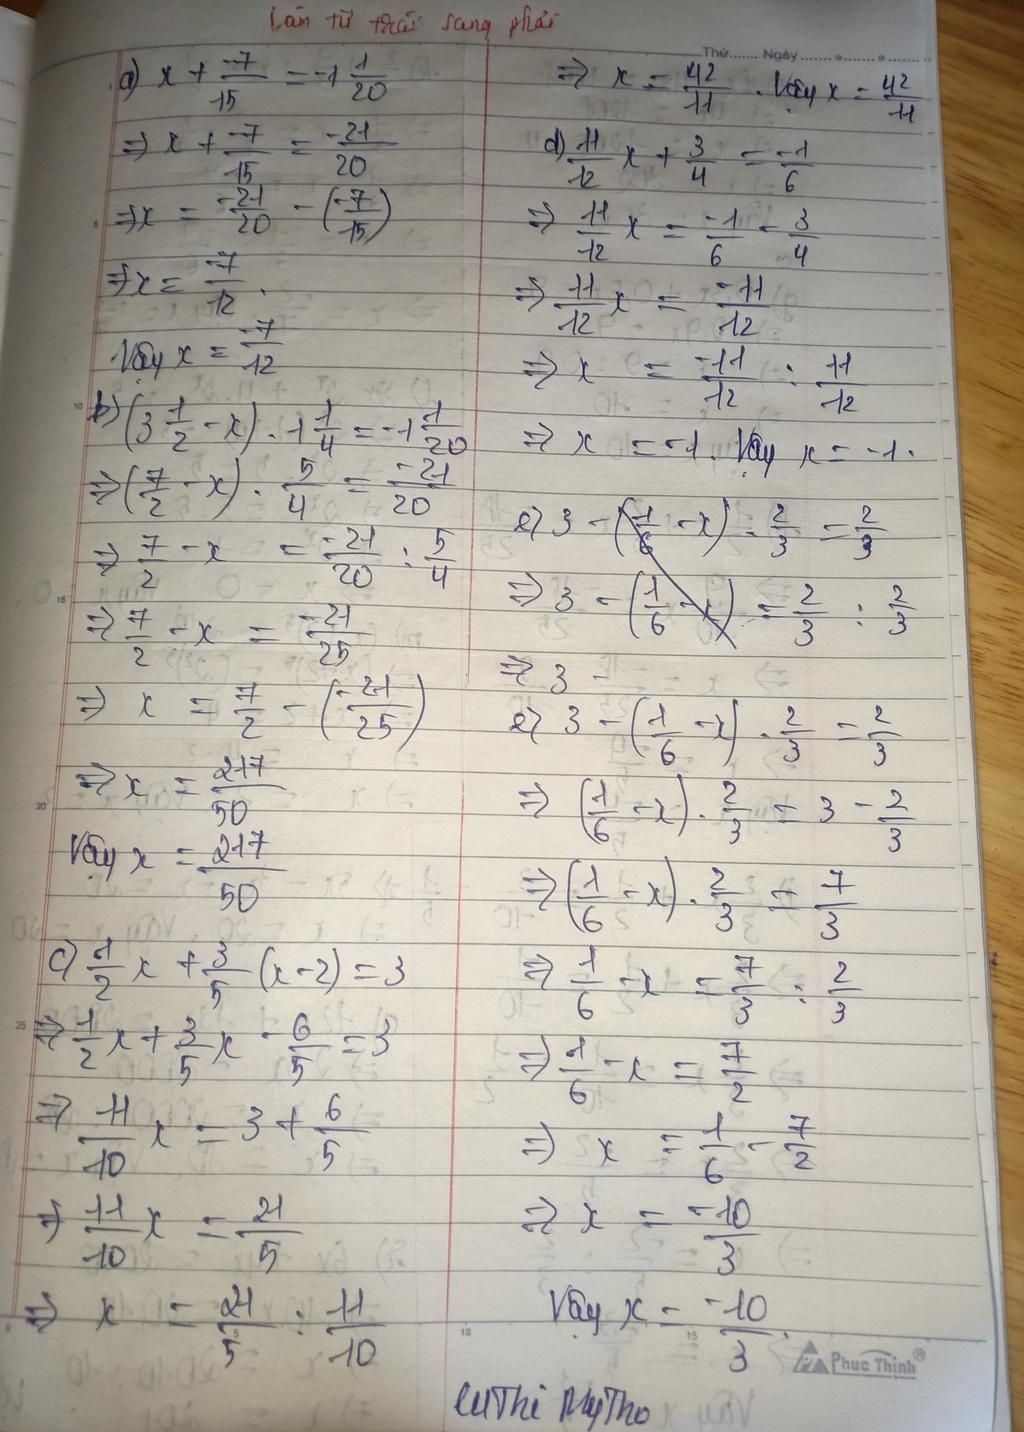 Làm từ trái sang phải
Thứ....... Ngày ......
a) x + -7/15 = -1 1/20
=> x + -7/15 = -21/20
=> x = -21/20 - (-7/15)
=> x = -7/12.
Vậy x = -7/12
b) (3 1/2 - x) . 1 1/4 = -1 1/20
=> (7/2 - x) . 5/4 = -21/20
=> 7/2 - x = -21/20 : 5/4
=> 7/2 - x = -21/25
=> x = 7/2 - (-21/25)
=> x = 217/50
Vậy x = 217/50
c) 1/2 x + 3/5 (x - 2) = 3
=> 1/2 x + 3/5 x - 6/5 = 3
=> 11/10 x = 3 + 6/5
=> 11/10 x = 21/5
=> x = 21/5 : 11/10
=> x = 42/11 . Vậy x = 42/11
d) 11/12 x + 3/4 = -1/6
=> 11/12 x = -1/6 - 3/4
=> 11/12 x = -11/12
=> x = -11/12 : 11/12
=> x = -1. Vậy x = -1.
e) 3 - (1/6 - x) . 2/3 = 2/3
=> 3 - (1/6 - x) = 2/3 : 2/3
=> 3 -
e) 3 - (1/6 - x) . 2/3 = 2/3
=> (1/6 - x) . 2/3 = 3 - 2/3
=> (1/6 - x) . 2/3 = 7/3
=> 1/6 - x = 7/3 : 2/3
=> 1/6 - x = 7/2
=> x = 1/6 - 7/2
=> x = -10/3
Vậy x = -10/3.
5
10
15
20
25
10
15
Phuc Thinh